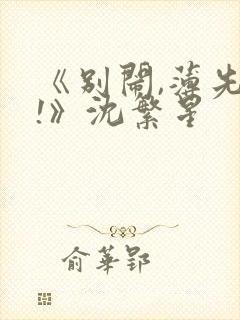 《别鬧,薄先
!》沈繁星
俞華郢